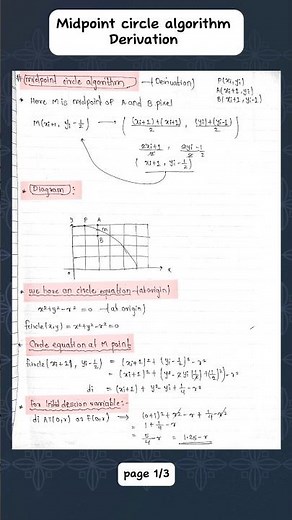 Midpoint circle algorithm
Derivation
# midpoint circle algorithm → (Derivation) P(xi,yi)
A(xi+1,yi)
B(xi+1,yi-1)
* Here M is midpoint of A and B pixel
M(xi+1, yi-1/2) → ( (xi+1)+(xi+1)/2 , (yi)+(yi-1)/2 )
2xi+1/2 , 2yi-1/2
( xi+1 , yi-1/2 )
* Diagram :-
y P A
M
B
x
* we have an circle equation (at origin)
x²+y²-r²=0 - (at origin)
fcircle(x,y) = x²+y²-r²=0
* Circle equation at M point
fcircle(xi+1, yi-1/2) = (xi+1)²+(yi-1/2)²-r²
= (xi+1)² + (y²-2yi(1/2)+(1/2)²)-r²
di = (xi+1) + y²-yi+1/4-r²
* For Inital descion variable:-
di AT(0,r) or F(0,r) → (0+1)²+r²-r+1/4-r²
= 1+1/4-r
= 5/4-r = 1.25-r
page 1/3